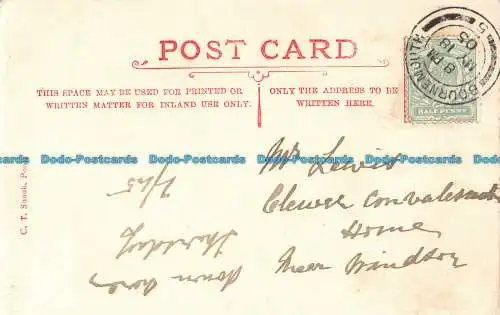 POST CARD
THIS SPACE MAY BE USED FOR PRINTED OR
WRITTEN MATTER FOR INLAND USE ONLY.
ONLY THE ADDRESS TO BE
WRITTEN HERE.
BOURNEMOUTH
8 PM
18
05
5
HALFPENNY
Dodo-Postcards Dodo-Postcards Dodo-Postcards Dodo-Postcards Dodo-Postcards
Mr Lewis
Clewer Convalescent
Home
Near Windsor
down here
Thursday
C. T. Snook, Po